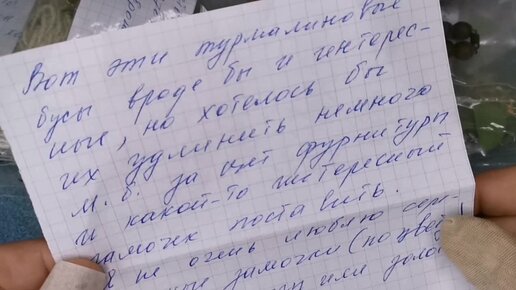 Вот эти турмалиновые
бусы вроде бы и интерес-
ные, но хотелось бы
их удлинить немного
м.б. за счёт фурнитуры
и какой-то интересный
замочек поставить.
Я не очень люблю
замочки (по цвету)
или